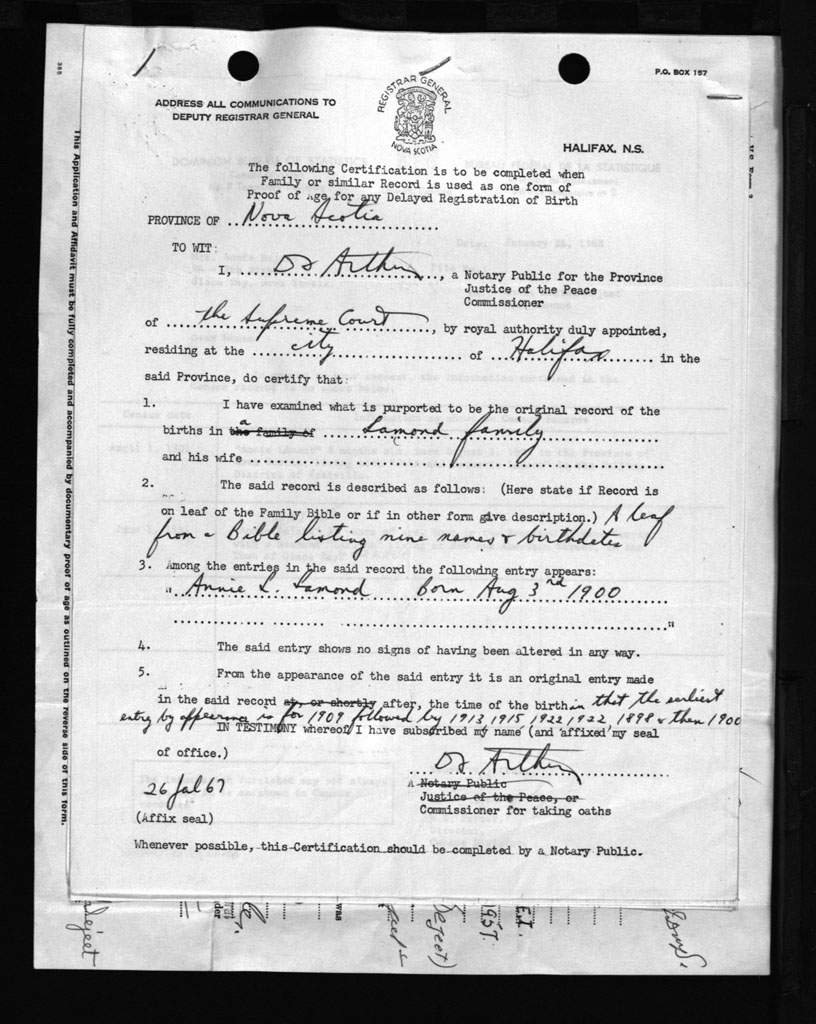 P.O. BOX 157
REGISTRAR GENERAL
NOVA SCOTIA
ADDRESS ALL COMMUNICATIONS TO
DEPUTY REGISTRAR GENERAL
HALIFAX, N.S.
The following Certification is to be completed when
Family or similar Record is used as one form of
Proof of Age for any Delayed Registration of Birth
PROVINCE OF Nova Scotia
TO WIT:
I, Arthur, a Notary Public for the Province
Justice of the Peace
Commissioner
of the Supreme Court, by royal authority duly appointed,
residing at the city of Halifax in the
said Province, do certify that:
1. I have examined what is purported to be the original record of the
births in a the family of Lamond family
and his wife
2. The said record is described as follows: (Here state if Record is
on leaf of the Family Bible or if in other form give description.) A leaf
from a Bible listing nine names & birthdates
3. Among the entries in the said record the following entry appears:
" Annie L. Lamond Born Aug 3rd 1900
"
4. The said entry shows no signs of having been altered in any way.
5. From the appearance of the said entry it is an original entry made
in the said record at, or shortly after, the time of the birth in that the earliest
entry by appearance is for 1909 followed by 1913, 1915, 1922, 1922, 1898 & then 1900
IN TESTIMONY whereof I have subscribed my name (and affixed my seal
of office.)
Arthur
A Notary Public
Justice of the Peace, or
Commissioner for taking oaths
26 Jul 67
(Affix seal)
Whenever possible, this Certification should be completed by a Notary Public.
This Application and Affidavit must be fully completed and accompanied by documentary proof of age as outlined on the reverse side of this form.
was
1957.